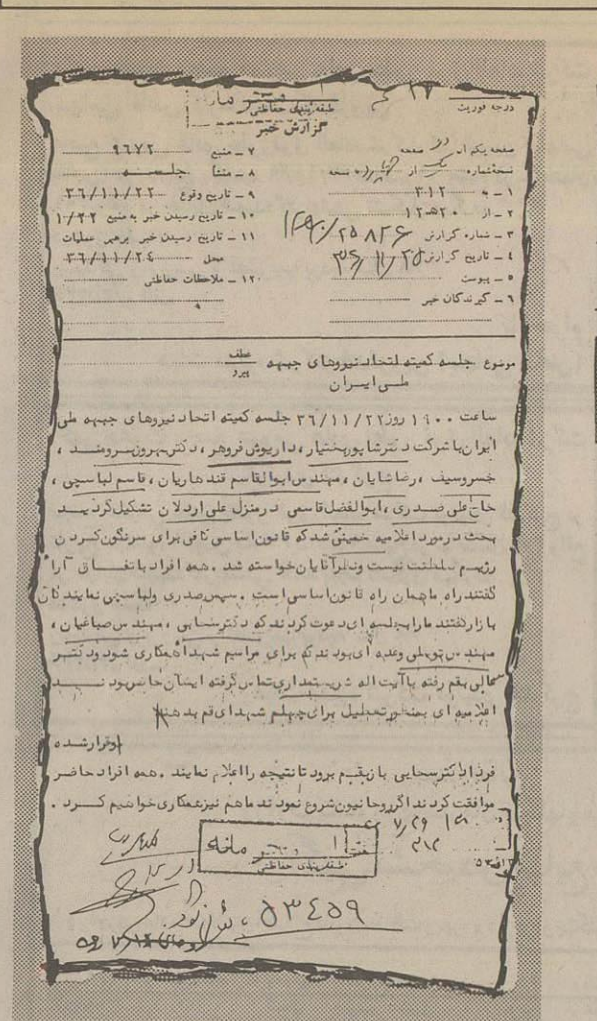 درجه فوریت
طبقه‌بندی حفاظتی
گزارش خبر
صفحه یکم از دو صفحه
نسخه‌شماره یک از نسخه
۱ ـ به ۳۱۲
۲ ـ از ۲۰هـ۱۲
۳ ـ شماره گزارش ۲۵۸۲۶
۴ ـ تاریخ گزارش ۳۶/۱۱/۲۵
۵ ـ پیوست
۶ ـ گیرندگان خبر
۷ ـ منبع ۹۶۷۲
۸ ـ منشأ جلسه
۹ ـ تاریخ وقوع ۳۶/۱۱/۲۲
۱۰ ـ تاریخ رسیدن خبر به منبع
۱۱ ـ تاریخ رسیدن خبر برهبر عملیات
محل ۳۶/۱۱/۲٤
۱۲ـ ملاحظات حفاظتی
موضوع جلسه کمیته اتحاد نیروهای جبهه
ملی ایران
عطف
پیرو
ساعت ۱۹۰۰ روز ۳۶/۱۱/۲۲ جلسه کمیته اتحاد نیروهای جبهه ملی
ایران با شرکت دکتر شاپور بختیار ، داریوش فروهر ، دکتر بهروز برومند ،
خسرو سیف ، رضا شایان ، مهندس ابوالقاسم قندهاریان ، قاسم لباسچی ،
حاج علی صدری ، ابوالفضل قاسمی در منزل علی اردلان تشکیل گردید
بحث در مورد اعلامیه خمینی شد که قانون اساسی کافی برای سرنگون کردن
رژیم سلطنت نیست و نظر آنایان خواسته شد . همه افراد با تفاق آراء
گفتند راه ما همان راه قانون اساسی است . سپس صدری و لباسچی نمایندگان
بازار گفتند ما را بجلسه ای دعوت کردند که دکتر سحابی ، مهندس صباغیان ،
مهندس توسلی وعده ای بودند که برای مراسم شهدا همکاری شود و دکتر
سحابی بقم رفته با آیت اله شریعتمداری تماس گرفته ایشان حاضر بودند
اعلامیه ای بمنظور تعطیل برای چهلم شهدای قم بدهند
و قرار شده
فردا دکتر سحابی باز بقم برود تا نتیجه را اعلام نمایند . همه افراد حاضر
موافقت کردند اگر روحانیون شروع نمودند ما هم نیز همکاری خواهیم کرد .
۳۱۲
طبقه‌بندی حفاظتی
۵۳۴۵۹